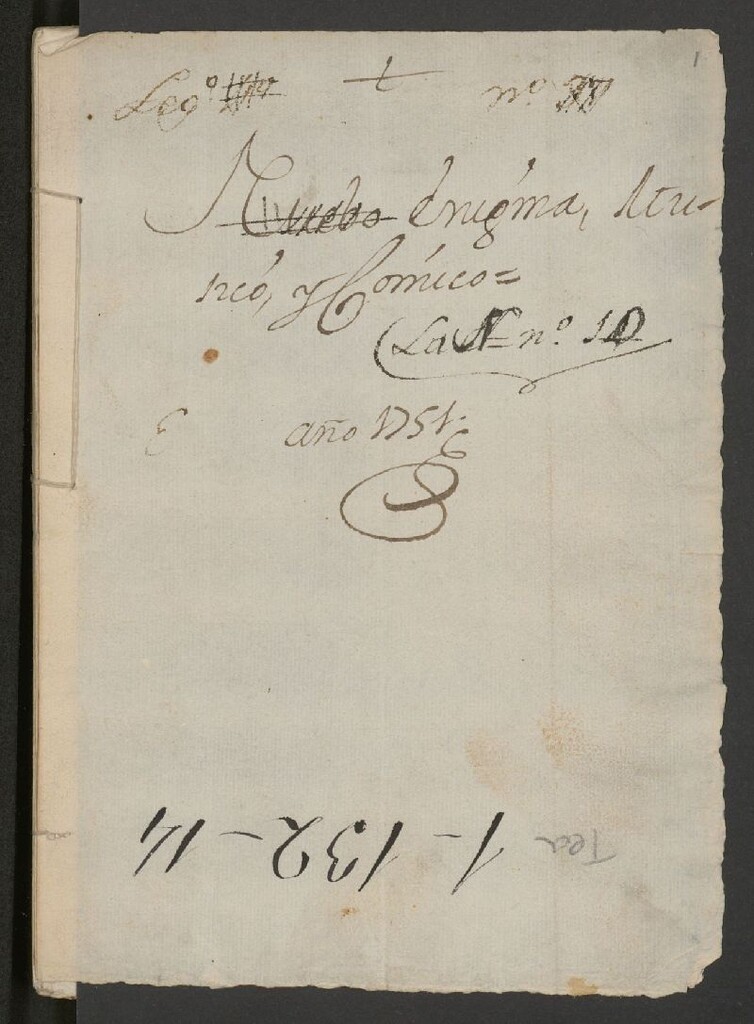 1
Leg.º nº
Nuebo Enigma, Mu-
sico, y Comico=
La nº 10
año 1751.
Tea 1-132-14